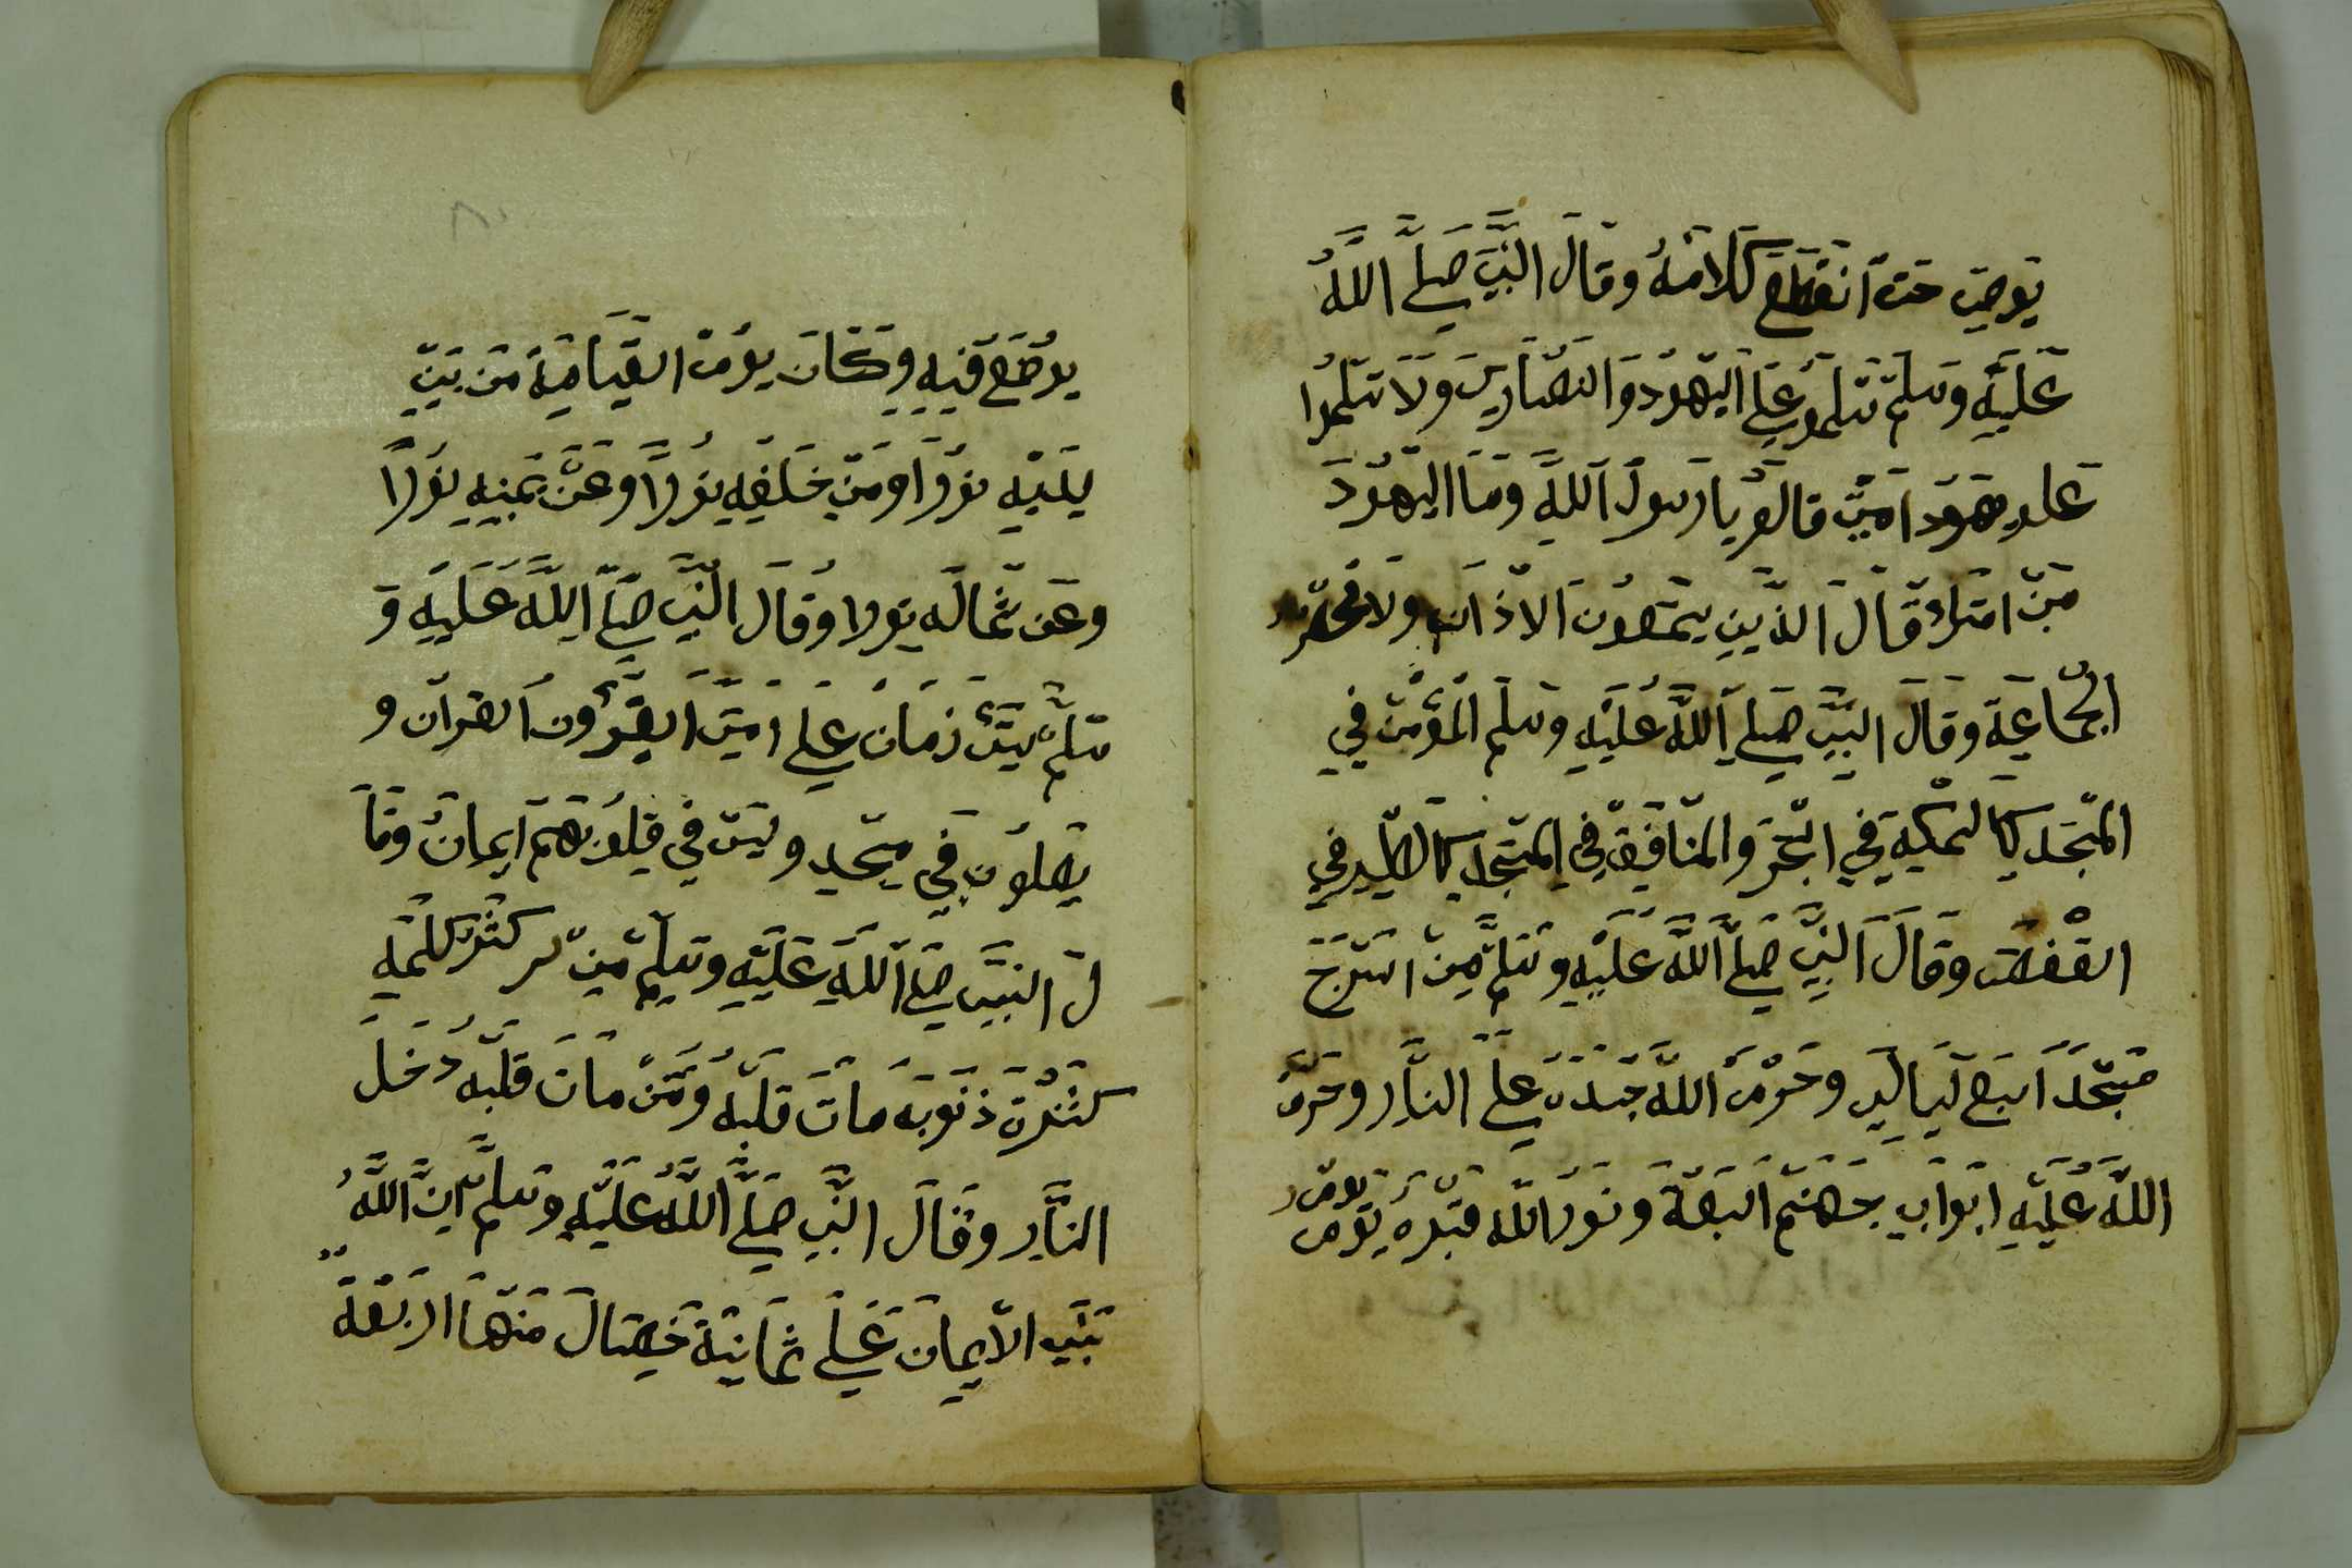 يوصي حتا انقطع كلامه وقال النبي صلي الله
عليه وسلم سلمو علي اليهود والنصاري ولا تسلموا
علي هود امتي قالو يا رسول الله وما اليهود
من امتك قال الذين يسمعون الاذان ولا
الجماعة وقال النبي صلي الله عليه وسلم المؤمن في
المسجد كالسمكة في البحر والمنافقة في المسجد كالطير في
القفص وقال النبي صلي الله عليه وسلم من اسرج
مسجدا سبع ليالي وحرم الله جسده علي النار وحرم
الله عليه ابواب جهنم السبعة ونور الله قبره يوم
يوضع فيه وكان يوم القيامة من بين
يديه نورا ومن خلفه نورا وعن يمينه نورا
وعن شماله نورا وقال النبي صلي الله عليه و
سلم زمان علي امتي القرآن و
يصلون في مسجد وليس في قلوبهم ايمان وقا
ل النبي صلي الله عليه وسلم من كلمه
كثرة ذنوبه مات قلبه ومن مات قلبه دخل
النار وقال النبي صلي الله عليه وسلم ان الله
بني الايمان علي ثمانية خصال منها اربعة